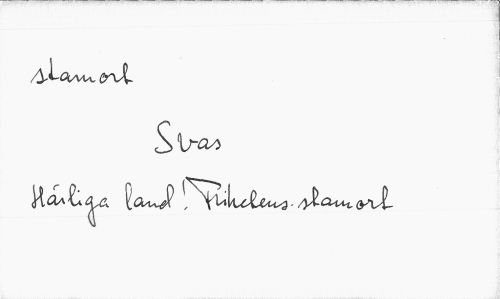 stamort
Svas
Härliga land! Frihetens stamort